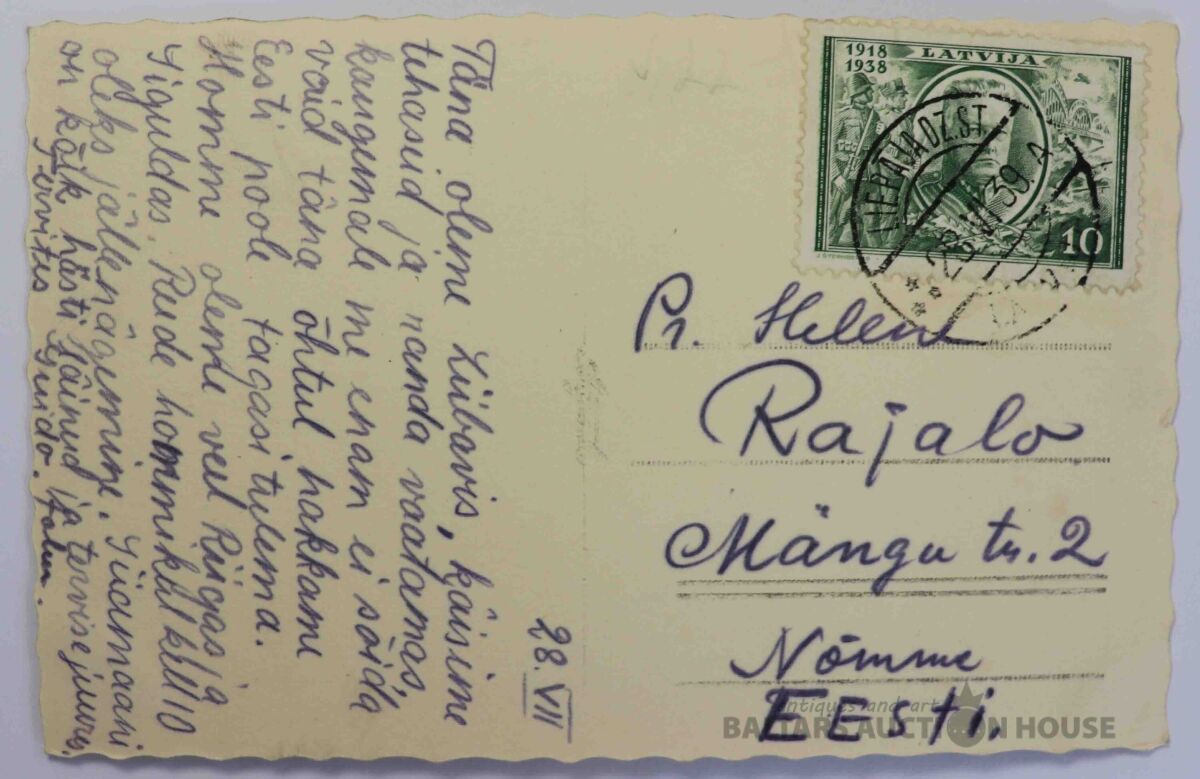 28. VII
Täna oleme Liibavis, käisime
tehasid ja randa vaatamas,
kaugemale me enam ei sõida
vaid täna õhtul hakkame
Eesti poole tagasi tulema.
Homme oleme veel Riigas ja
Siguldas. Reede hommikul kell 10
oleks jällenägemine. Siiamaani
on kõik hästi läinud ja tervise juures.
Tervites Guido.
1918
1938
LATVIJA
10
LIEPĀJA DZ.ST.
28 VII 39
Pr. Helene
Rajalo
Mängu tn. 2
Nõmme
EEsti.
antiques and art
BALTARS AUCTION HOUSE